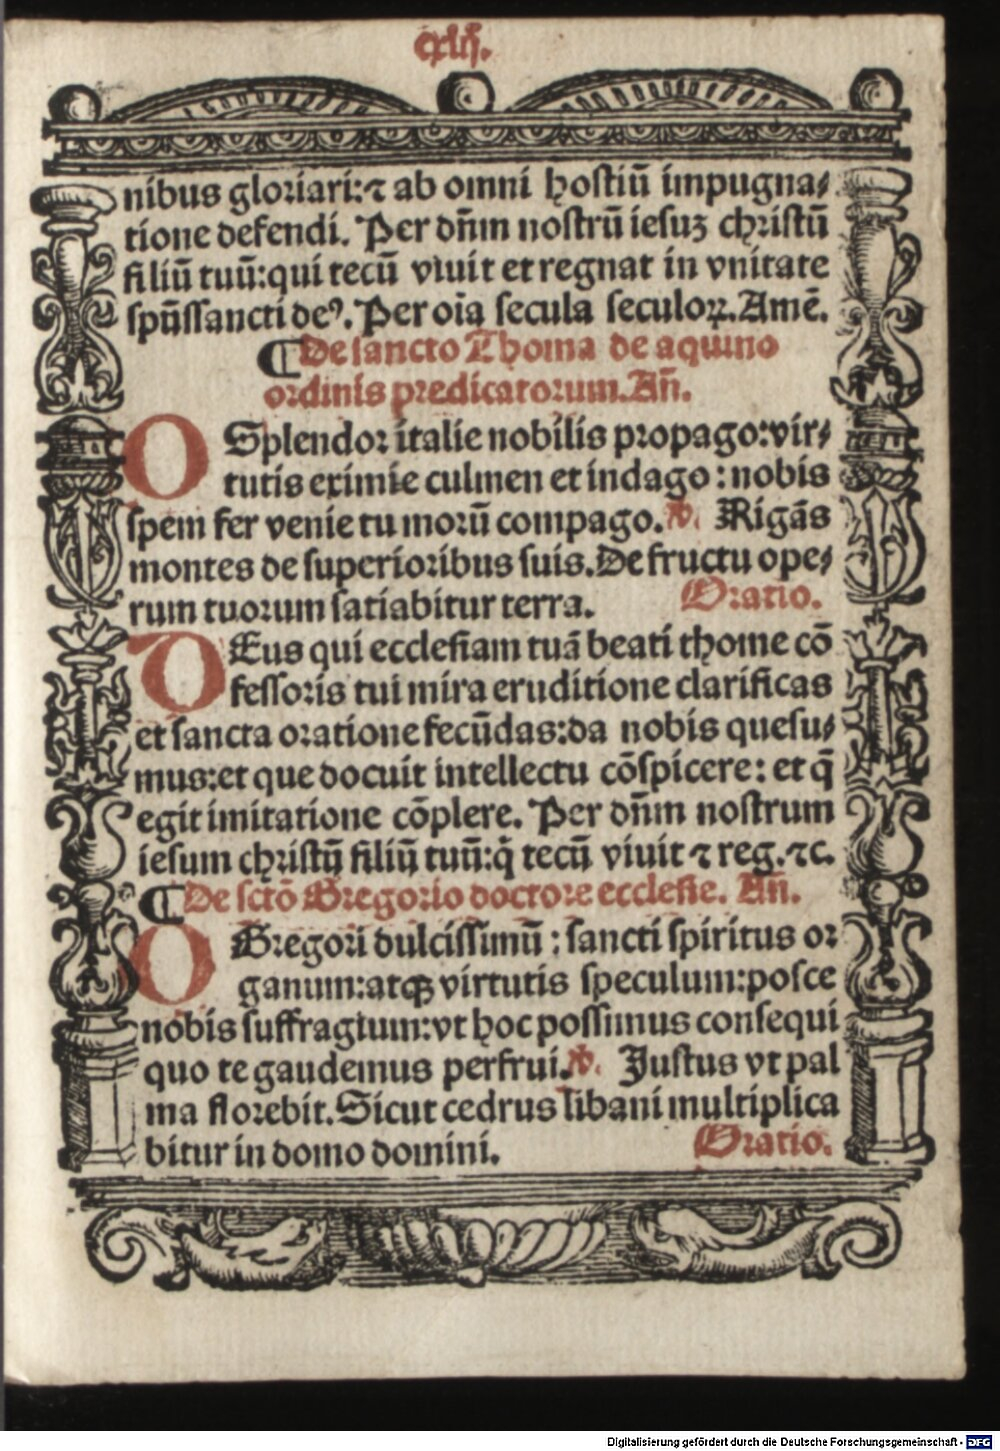 cxlij.
nibus gloriari:⁊ ab omni hoſtiū impugna⸗
tione defendi. Per dn̄m noſtrū ieſuꝫ chriſtū
filiū tuū:qui tecū viuit et regnat in vnitate
ſpūſſancti deꝰ. Per oīa ſecula ſeculoꝝ. Amē.
¶ De ſancto Thoma de aquino
ordinis predicatorum. An̄.
O Splendor italie nobilis propago:vir⸗
tutis eximie culmen et indago: nobis
ſpem fer venie tu morū compago. ℣. Rigās
montes de ſuperioribus ſuis. De fructu ope⸗
rum tuorum ſatiabitur terra. Oratio.
DEus qui eccleſiam tuā beati thome cō
feſſoris tui mira eruditione clarificas
et ſancta oratione fecūdas:da nobis queſu⸗
mus:et que docuit intellectu cōſpicere: et q̄
egit imitatione cōplere. Per dn̄m noſtrum
ieſum chriſtū filiū tuū:q̇ tecū viuit ⁊ reg.⁊c.
¶ De ſctō Gregorio doctore eccleſie. An̄.
O Gregori dulciſſimū : ſancti ſpiritus or
ganum:atqꝫ virtutis ſpeculum:poſce
nobis ſuffragium:vt hoc poſſimus conſequi
quo te gaudemus perfrui. ℣. Juſtus vt pal
ma florebit. Sicut cedrus libani multiplica
bitur in domo domini. Oratio.
Digitalisierung gefördert durch die Deutsche Forschungsgemeinschaft - DFG